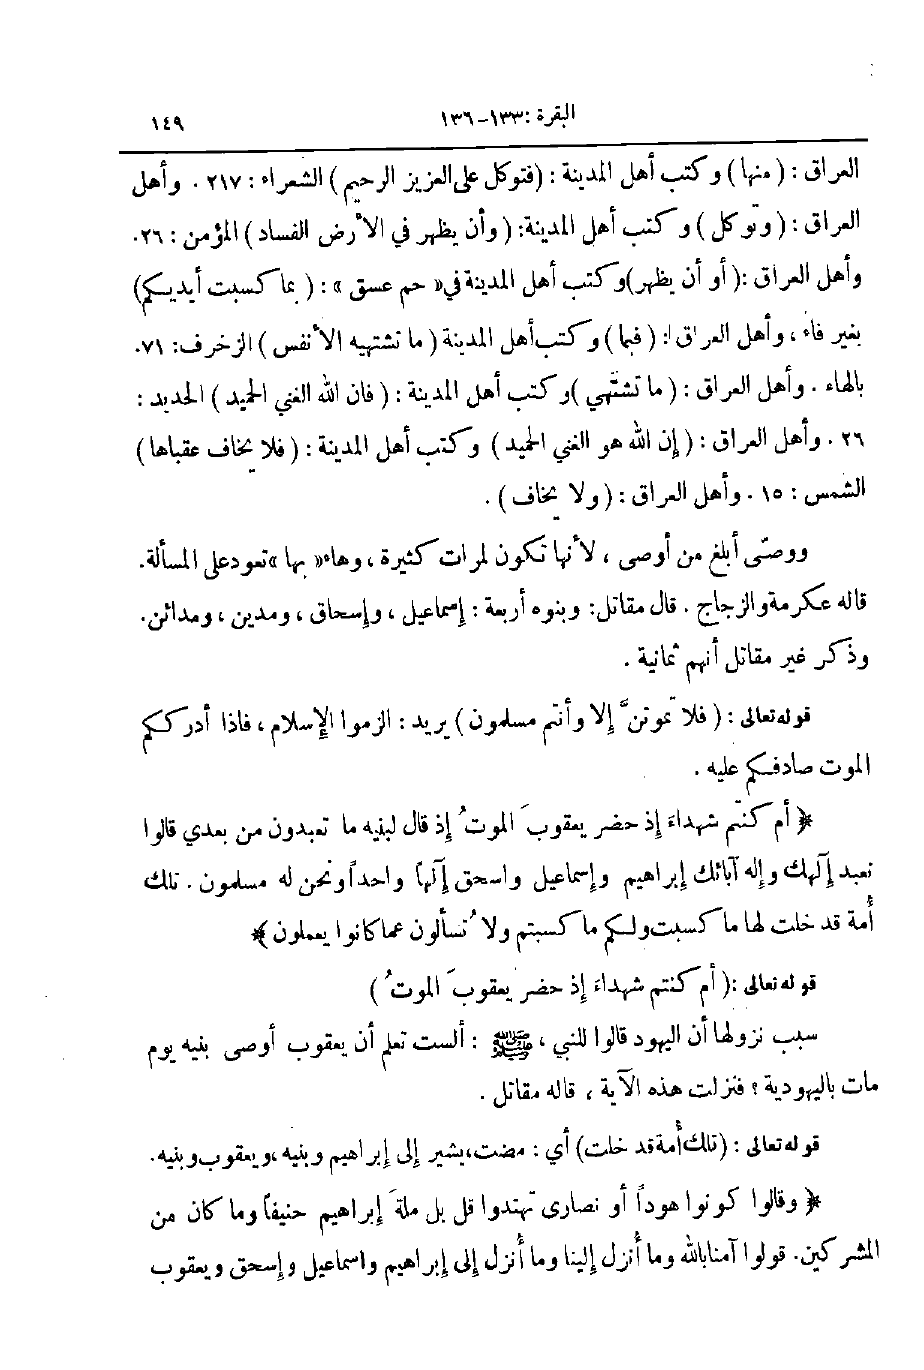 البقرة : ١٣٣-١٣٦ ١٤٩
العراق : ( منها ) وكتب أهل المدينة : ( فتوكل على العزيز الرحيم ) الشعراء : ٢١٧ . وأهل
العراق : ( وتوكل ) وكتب أهل المدينة: ( وأن يظهر في الأرض الفساد ) المؤمن : ٢٦.
وأهل العراق :( أو أن يظهر) وكتب أهل المدينة في« حم عسق » : ( بما كسبت أيديكم)
بغير فاء ، وأهل العراق ا: ( فبما ) وكتب أهل المدينة ( ما تشتهيه الأنفس ) الزخرف: ٧١.
بالهاء . وأهل العراق : ( ما تشتهي )وكتب أهل المدينة : ( فان الله الغني الحميد ) الحديد :
٢٦ . وأهل العراق : ( إن الله هو الغني الحميد ) وكتب أهل المدينة : ( فلا يخاف عقباها )
الشمس : ١٥ . وأهل العراق : ( ولا يخاف ) .
ووصّى أبلغ من أوصى ، لأنها تكون لمرات كثيرة ، وهاء« بها »تعود على المسألة.
قاله عكرمة والزجاج . قال مقاتل: وبنوه أربعة : إسماعيل ، وإسحاق ، ومدين ، ومدائن.
وذكر غير مقاتل أنهم ثمانية .
قوله تعالى : ( فلا تموتنَّ إلا وأنتم مسلمون ) يريد : الزموا الإسلام ، فاذا أدرككم
الموت صادفكم عليه .
﴿ أم كنتم شهداءَ إذ حضر يعقوبَ الموتُ إذ قال لبنيه ما تعبدون من بعدي قالوا
نعبد إلٓهك وإله آبائك إبراهيم وإسماعيل واسحق إلٓهاً واحداً ونحن له مسلمون . تلك
أُمة قد خلت لها ما كسبت ولكم ما كسبتم ولا تُسألون عما كانوا يعملون ﴾
قوله تعالى :( أم كنتم شهداءَ إذ حضر يعقوبَ الموتُ )
سبب نزولها أن اليهود قالوا للنبي ، ﷺ : ألست تعلم أن يعقوب أوصى بنيه يوم
مات باليهودية ؟ فنزلت هذه الآية ، قاله مقاتل .
قوله تعالى : (تلك أُمة قد خلت ) أي : مضت، يشير إلى إبراهيم وبنيه ،ويعقوب وبنيه.
﴿ وقالوا كونوا هوداً أو نصارى تهتدوا قل بل ملةَ إبراهيم حنيفاً وما كان من
المشركين. قولوا آمنا بالله وما أُنزل إلينا وما أُنزل إلى إبراهيم واسماعيل وإسحق ويعقوب